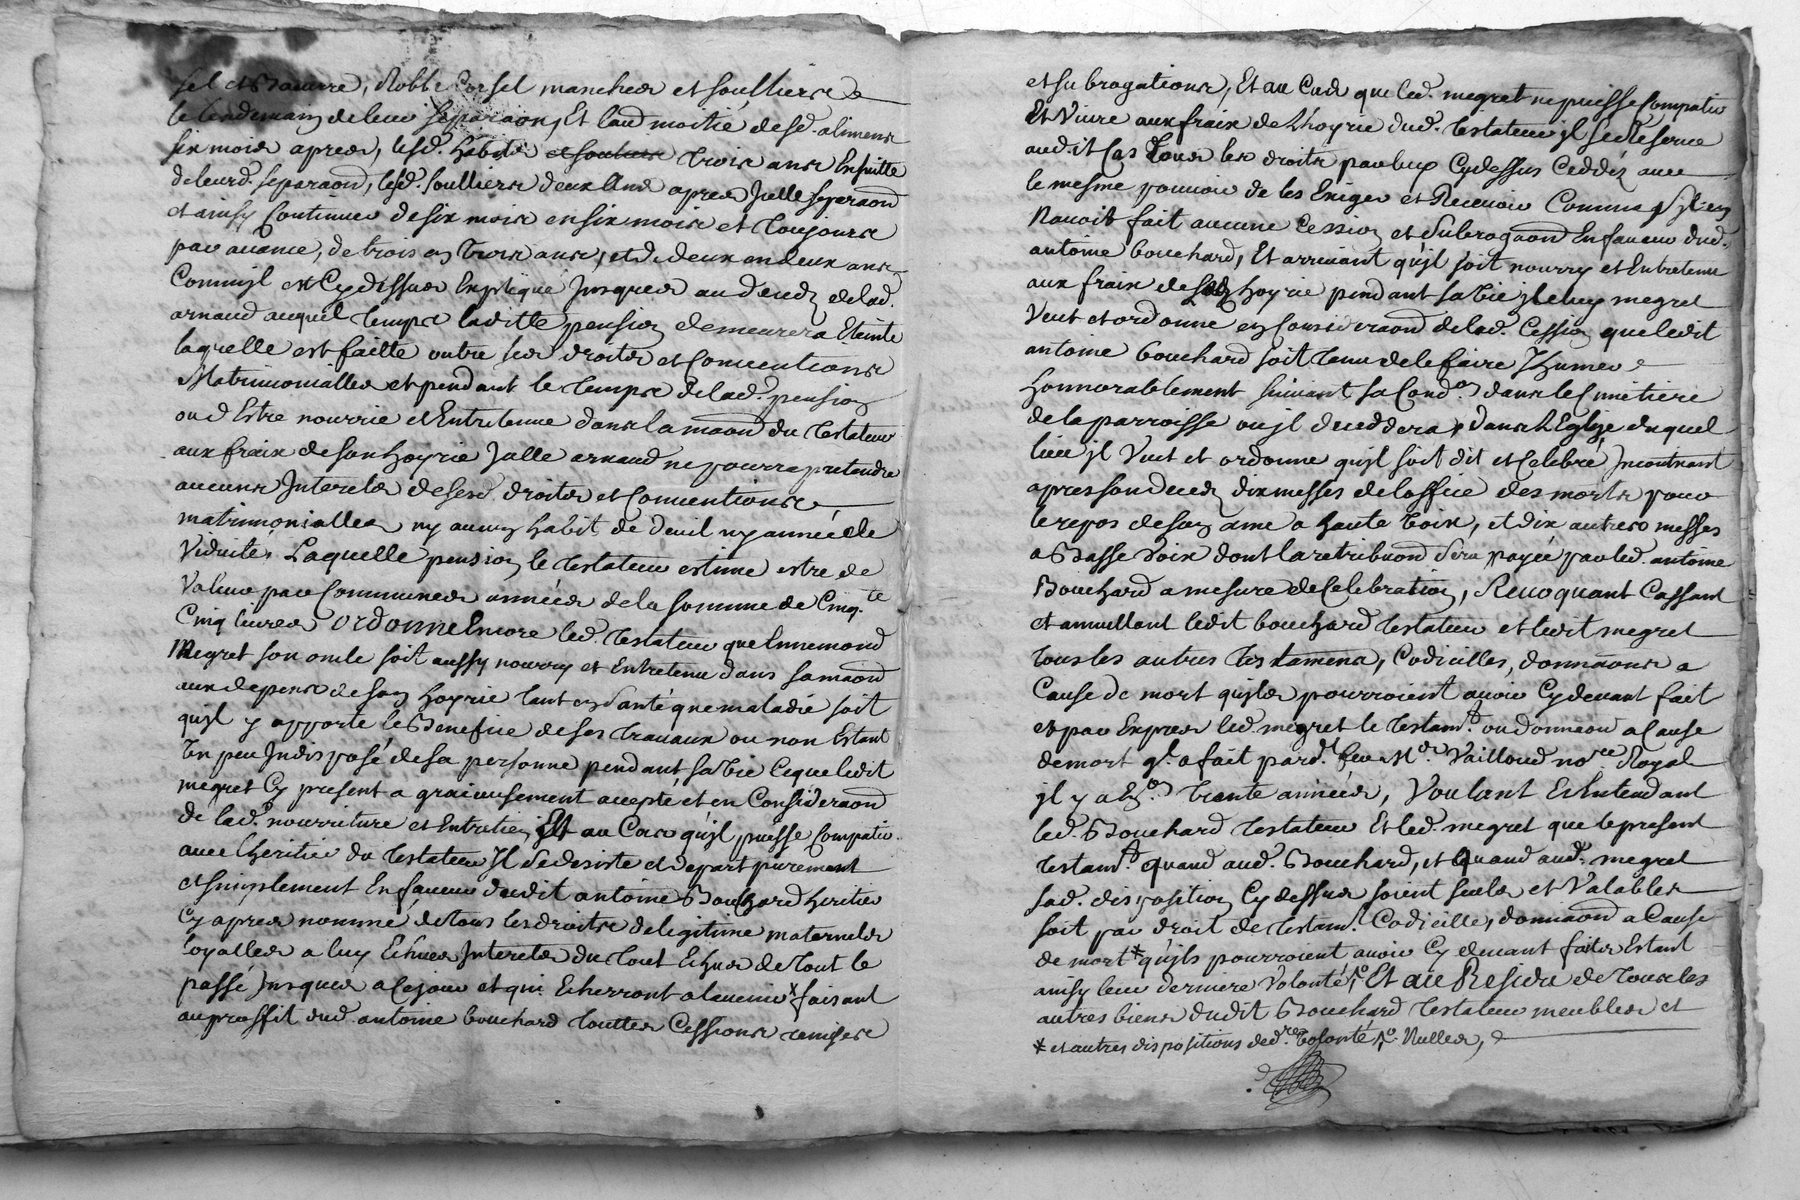 sel et Baurre, Robbe Corsel manches et soulliers
le lendemain de leur separaon, Et laud moitié desd. alimens
six mois apres, lesd. habits et souliers trois ans Ensuitte
de leurd. separaon, lesd. soulliers deux Ans apres Jcelle separaon
et ainsy Continuer de six mois en six mois et Toujours
par auance, de trois en trois ans, et de deux en deux ans
Commjl est Cydessus Expliqué Jusques au deceds de lad.
arnaud auquel Temps laditte pension demeurera Eteinte
laquelle est faitte outre ses droits et Conuentions
Matrimonialles et pendant le Temps de lad. pension
ou d'Estre nourrie et Entretenue dans la maon du Testateur
aux fraix de son hoyrie Jcelle arnaud ne pourra pretendre
aucuns Jnterets de sesd. droits et Conuentions
matrimonialles ny aucun habit de deuil ny année de
Viduité, Laquelle pension le Testateur estime estre de
Valeur par Communes années de la somme de Cinq.te
Cinq liures, ordonne Encore led. Testateur que Ennemond
Megret son oncle soit aussy nourry et Entretenu dans sa maon
aux depens de son hoyrie tant en santé que maladie soit
qujl y apporte le Benefice de ses trauaux ou non Estant
Un peu Jndisposé de sa personne pendant sa Vie Ce que ledit
megret Cy present a gratieusement accepté et en Consideraon
de lad. nourriture et Entretien, Et au Cas qu'jl puisse Compatir
auec lheritier du Testateur Jl se desiste et depart purement
et simplement En faueur dudit antoine Bouchard heritier
Cy apres nommé de tous les droits de legitime maternels
loyalles a luy Echues Jnterets du tout Echus de tout le
passé Jusques a Ce jour et qui Echerront a l'auenir * faisant
au proffit dud. antoine bouchard Toutes Cessions remises
et subrogations, Et au Cas que led. megret ne puisse Compatir
Et Viure aux fraix de Lhoyrie dud. Testateur jl se Réserue
aud.it Cas Tous les droits par luy Cydessus Ceddés auec
le mesme pouuoir de les Exiger et Receuoir Comme s'jl en
Nauoit fait aucune Cession et Subrogaon En faueur dud.
antoine bouchard, Et arriuant qu'jl soit nourry et Entretenu
aux fraix de lad. hoyrie pendant sa Vie jceluy megret
Veut et ordonne en Consideraon de lad. Cession que ledit
antoine bouchard soit Tenu de le faire Jhumer
honnorablement suiuant sa Cond.on dans le Cimetiere
de la parroisse ou jl deceddera, dans l'Eglize duquel
lieu jl Veut et ordonne qu'jl soit dit et Celebré Jncontinant
apres son deceds dix messes de loffice des morts pour
le repos de son ame a haute Voix, et dix autres messes
a Basse Voix dont la retribuon sera payée par led. antoine
Bouchard a mesure de Celebration, Reuoquant Cassant
et annullant ledit bouchard Testateur et ledit megret
Tous les autres Testamens, Codicilles, donnaons a
Cause de mort qujls pourroient auoir Cydeuant fait
et par Expres led. megret le Testam.t ou donnaon a Cause
de mort q.l a fait pard.t feu M.e Vailloud no.re Royal
jl y a En.on Trante années, Voulant Et Entendant
led. Bouchard Testateur Et led. megret que le present
Testam.t quand aud. Bouchard, et quand aud. megret
sad. disposition Cydessus soient seuls et Valables
soit par droit de Testam.t Codicille, donnaon a Cause
de mort * qu'jls pourroient auoir Cy deuant faits Estant
ainsy leur derniere Volonté, Et au Residu de Tous les
autres biens dudit Bouchard Testateur meubles et
* et autres dispositions de d.re Volonté Nulles,